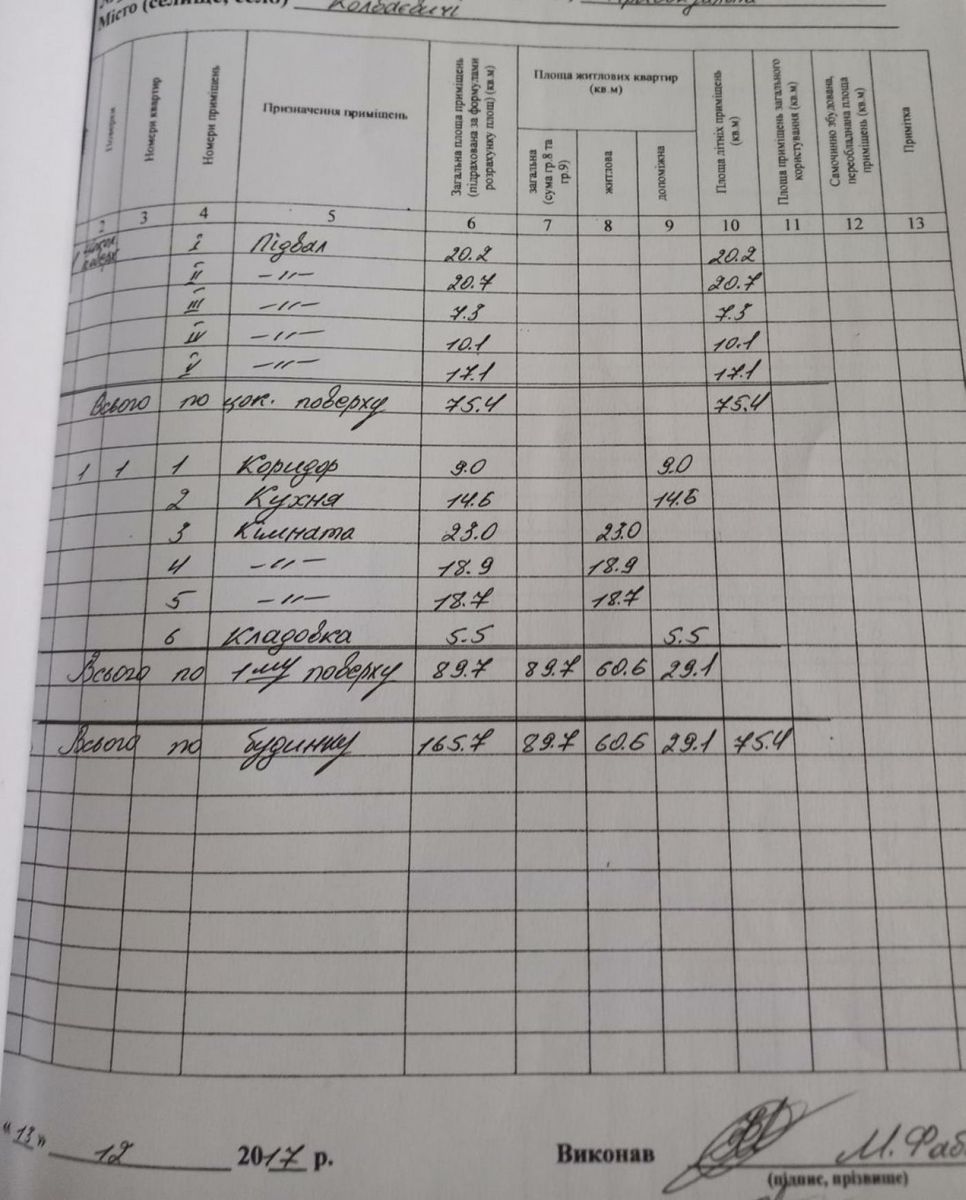 Місто (селище, село)
Поверхи
Номери квартир
Номери приміщень
Призначення приміщень
Загальна площа приміщень (підрахована за формулами розрахунку площ) (кв.м)
Площа житлових квартир (кв.м)
загальна (сума гр.8 та гр.9)
житлова
допоміжна
Площа літніх приміщень (кв.м)
Площа приміщень загального користування (кв.м)
Самочинно збудована, переобладнана площа приміщень (кв.м)
Примітка
2 3 4 5 6 7 8 9 10 11 12 13
поверх I Підвал 20.2 20.2
II -"- 20.7 20.7
III -"- 7.3 7.3
IV -"- 10.1 10.1
V -"- 17.1 17.1
Всього по цок. поверху 75.4 75.4
1 1 1 Коридор 9.0 9.0
2 Кухня 14.6 14.6
3 Кімната 23.0 23.0
4 -"- 18.9 18.9
5 -"- 18.7 18.7
6 Кладовка 5.5 5.5
Всього по 1му поверху 89.7 89.7 60.6 29.1
Всього по будинку 165.7 89.7 60.6 29.1 75.4
"13" 12 2017 р. Виконав М. Фаб
(підпис, прізвище)